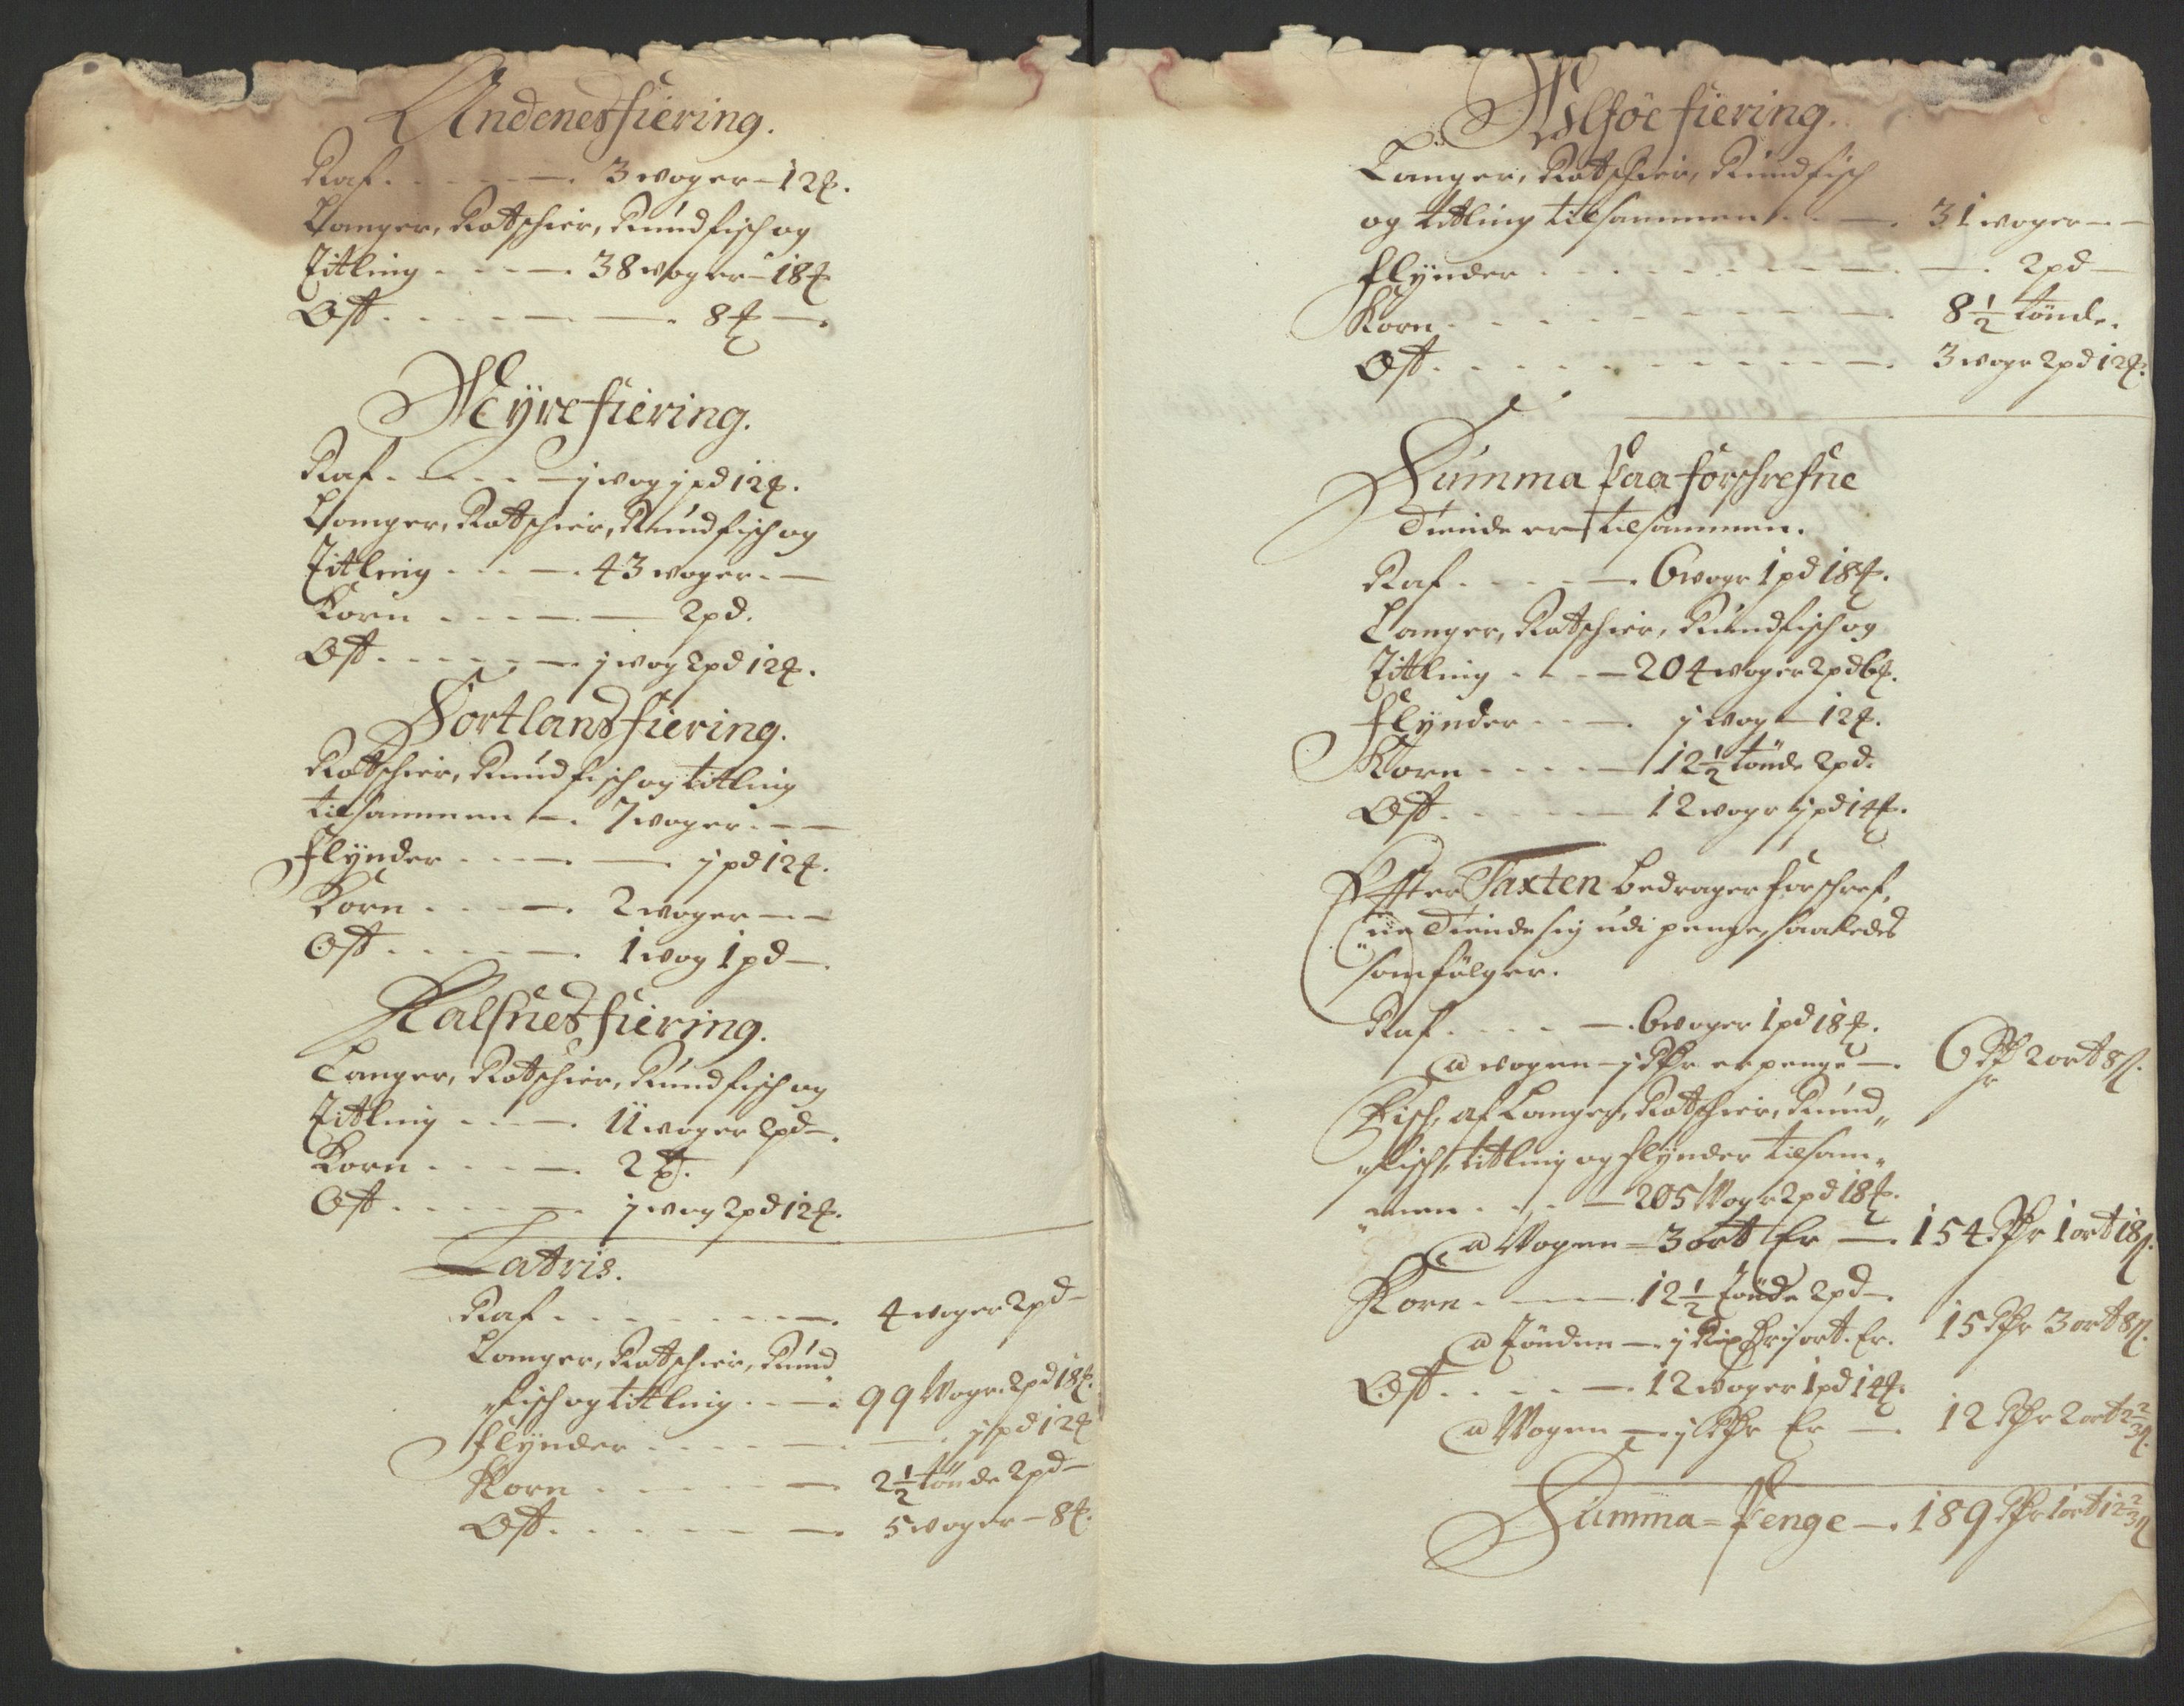 Andenes fiering.
Raf . . . . — . 3 woger – 12 ℔.
Langer, Rotschier, Rundfisch og
Titling . . . — . 38 woger – 18 ℔
Ost . . . . — — . 8 ℔ — .
Reÿre fiering.
Raf . . . . — j wog j pd 12 ℔.
Langer, Rotschier, Rundfisch og
Titling . . . — . 43 woger . —
Korn . . . — — 2 pd.
Ost . . . . . — . j wog 2 pd 12 ℔.
Sortlands fiering.
Rotschier, Rundfisch og titling
tilsammen — . 7 woger . — —
Flÿnder . . . — . — . j pd 12 ℔.
Korn . . . . — . 2 woger — —
Ost . . . . — . 1 wog 1 pd — .
Kalsnes fiering.
Langer, Rotschier, Rundfisch og
Titling . . . — . 11 woger 2 pd — .
Korn . . . . — . 2 ℔.
Ost . . . . . — . j wog 2 pd 12 ℔.
Latris.
Raf . . . . . . — . 4 woger 2 pd —
Langer, Rotschier, Rund„
„fisch og titling . . — . 99 Woger 2 pd 18 ℔.
flÿnder . . . . — . — . j pd 12 ℔
Korn . . . . . — 2½ tönde 2 pd —
Ost . . . . . — . 5 woger – 8 ℔.
fiering.
Langer, Rotschier, Rundfisch
og titling tilsammen . . — . 31 woger — —
flÿnder . . . . . . — . — . 2 pd —
Korn . . . . . . . — . 8½ tönde.
Ost . . . . . . . . — . 3 wogr 2 pd 12 ℔.
Summa Paa forschrefne
Tiende er tilsammen.
Raf . . . . — . 6 wogr 1 pd 18 ℔.
Langer, Rotschier, Rundfisch og
Titling . . . — 204 woger 2 pd 6 ℔.
flÿnder . . — . j wog – 12 ℔.
Korn . . . . — 12½ tönde 2 pd.
Ost . . . . . — 12 wogr j pd 14 ℔.
Effter Taxten bedrager forschref,
ne Tiende sig udi penge, saaledes
som fölger.
Raf . . . . — . 6 woger 1 pd 18 ℔.
a wogen — j Rdr er penge — . 6 Rdr 2 ort 8 ß.
Fisch, af Langer, Rotschier, Rund„
„fisch, titling og flÿnder tilsam„
„men . . . — 205 Wogr 2 pd 18 ℔.
a Wogen = 3 ort Er — . 154 Rdr 1 ort 18 ß.
Korn . — — . 12½ Tönde 2 pd — .
a Tönden — j Rix j ort. Er. 15 Rdr 3 ort 8 ß.
Ost . . . . — . 12 woger 1 pd 14 ℔.
a Wogen — j Rdr Er — . 12 Rdr 2 ort 2⅔ ß.
Summa = Penge — . 189 Rdr 1 ort 12⅔ ß